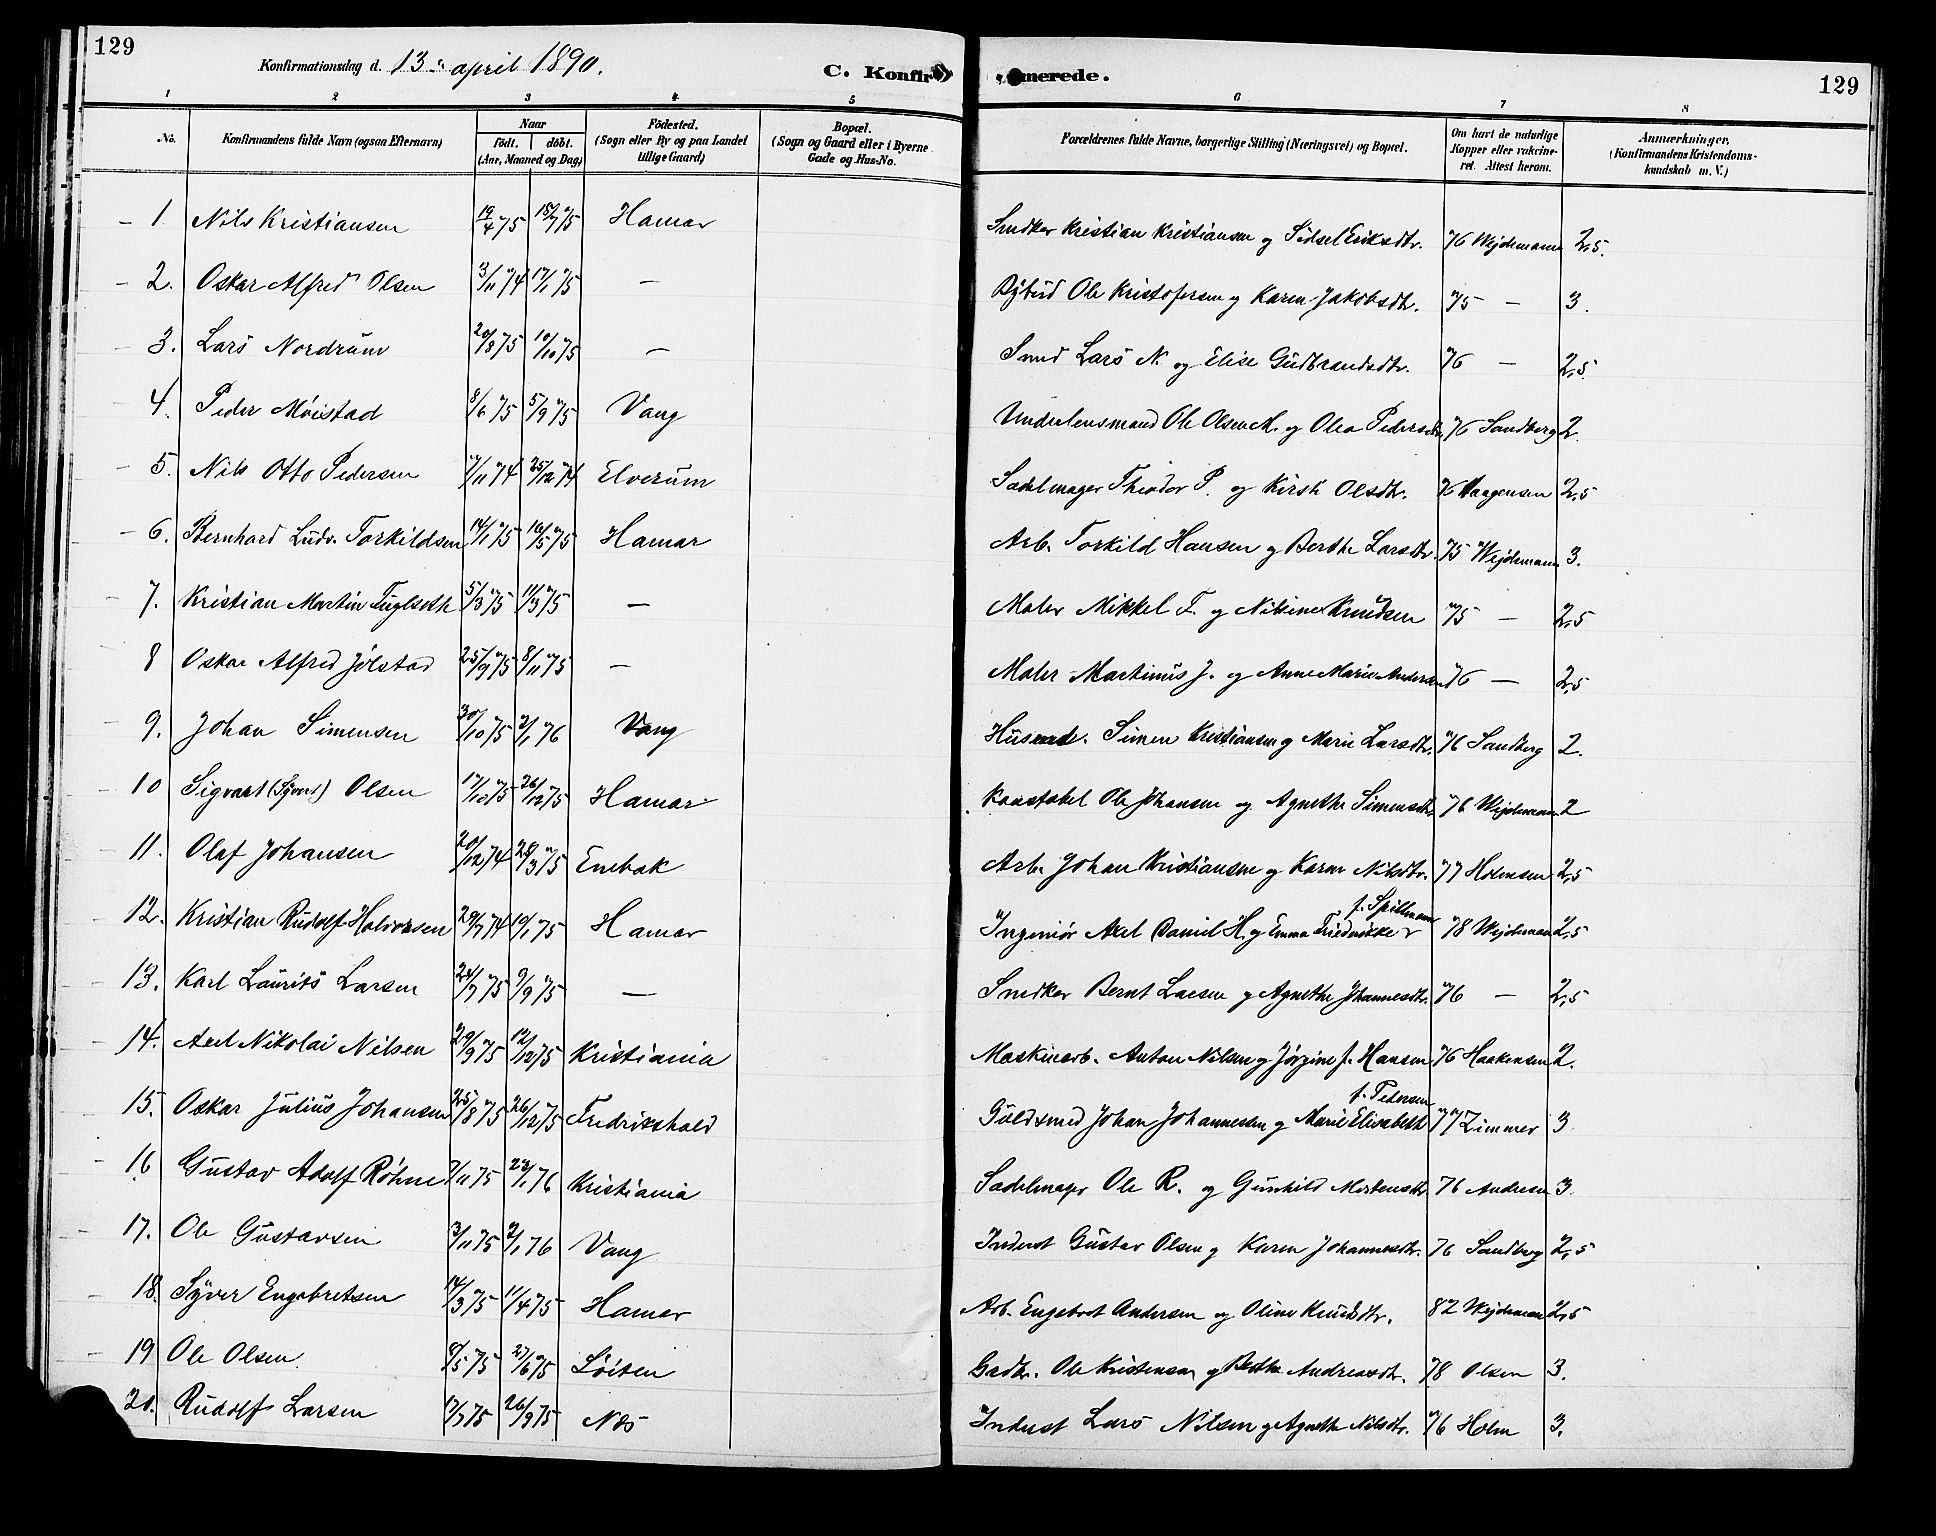 129
Konfirmationsdag d. 13de april 1890.
C. Konfir
merede.
129
1 2 3 4 5 6 7 8
No.
Konfirmandens fulde Navn (ogsaa Efternavn)
Naar
födt. döbt.
(Aar, Maaned og Dag)
Födested.
(Sogn eller By og paa Landet
tillige Gaard)
Bopæl.
(Sogn og Gaard eller i Byerne
Gade og Hus-No.
Forældrenes fulde Navne, borgerlige Stilling (Næringsvei) og Bopæl.
Om havt de naturlige
Kopper eller vakcine-
ret. Attest herom.
Anmærkninger.
(Konfirmandens Kristendoms-
kundskab m. V.)
1. Nils Kristiansen 19/4 75 18/7 75 Hamar Snedker Kristian Kristiansen og Sidsel Eriksdtr. 76 Wejdemann 2,5.
2. Oskar Alfred Olsen 3/11 74 17/1 75 — Ole Kristofersen og Karen Jakobsdtr. 75 — 3.
3. Lars Nordrum 20/8 75 10/10 75 — Smed Lars N. og Elise Gudbrandsdtr. 76 — 2,5.
4. Peder Moistad 8/6 75 5/9 75 Vang Underlensmand Ole Olsen M. og Olea Pedersdtr. 76 Sandberg 2.
5. Nils Otto Pedersen 7/11 74 25/12 74 Elverum Sadelmager Theodor P. og Kirsti Olsdtr. 76 Haagensen 2,5
6. Bernhard Ludv. Torkildsen 14/1 75 16/5 75 Hamar Arb. Torkild Hansen og Berthe Larsdtr. 75 Wejdemann 3.
7. Kristian Martin Fuglseth 5/3 75 11/3 75 — Maler Mikkel F. og Nikine Knudsen 75 — 2,5
8 Oskar Alfred Jølstad 25/9 75 8/11 75 — Maler Martinus J. og Anne Marie Andersen 76 — 2,5
9. Johan Simensen 30/10 75 2/1 76 Vang Husmd. Simen Kristiansen og Marie Larsdtr. 76 Sandberg 2.
10 Sigvart (Syvert) Olsen 17/10 75 26/12 75 Hamar Konstabel Ole Johansen og Agnethe Simensdtr. 76 Wejdemann 2
11. Olaf Johansen 20/12 74 28/3 75 Enebak Arb. Johan Kristiansen og Karen Nilsdtr. 77 Holmsen 2,5
12. Kristian Rudolf Halvorsen 29/7 74 10/1 75 Hamar Ingeniör Axel Daniel H. og Emma Friederikke f. Spillmann 78 Wejdemann 2,5
13. Karl Laurits Larsen 24/7 75 9/9 75 — Snedker Bernt Larsen og Agnethe Johannesdtr. 76 — 2,5
14. Axel Nikolai Nilsen 29/9 75 12/12 75 Kristiania Maskinarb. Anton Nilsen og Jörgine f. Hansen 76 Haakensen 2.
15. Oskar Julius Johansen 25/8 75 26/12 75 Fredrikshald Guldsmed Johan Johannessen og Marie Elisabeth f. Pedersen 77 Zimmer 3
16 Gustav Adolf Röhne 7/11 75 23/1 76 Kristiania Sadelmager Ole R. og Gunhild Mortensdtr. 76 Andresen 3.
17. Ole Gustavsen 3/11 75 2/1 76 Vang Inderst Gustav Olsen og Karen Johannesdtr. 76 Sandberg 2,5
18. Syver Engebretsen 14/3 75 11/4 75 Hamar Arb. Engebret Andersen og Oline Knudsdtr. 82 Wejdemann 2,5
19 Ole Olsen 8/5 75 27/6 75 Löiten Gadbr. Ole Kristensen og Berthe Andreasdtr. 78 Olsen 3.
20. Rudolf Larsen 17/7 75 26/9 75 Næs Inderst Lars Nilsen og Agnethe Nilsdtr. 76 Holm 3.